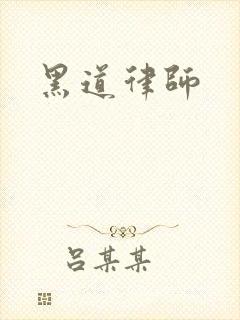 黑道律師
吕某某